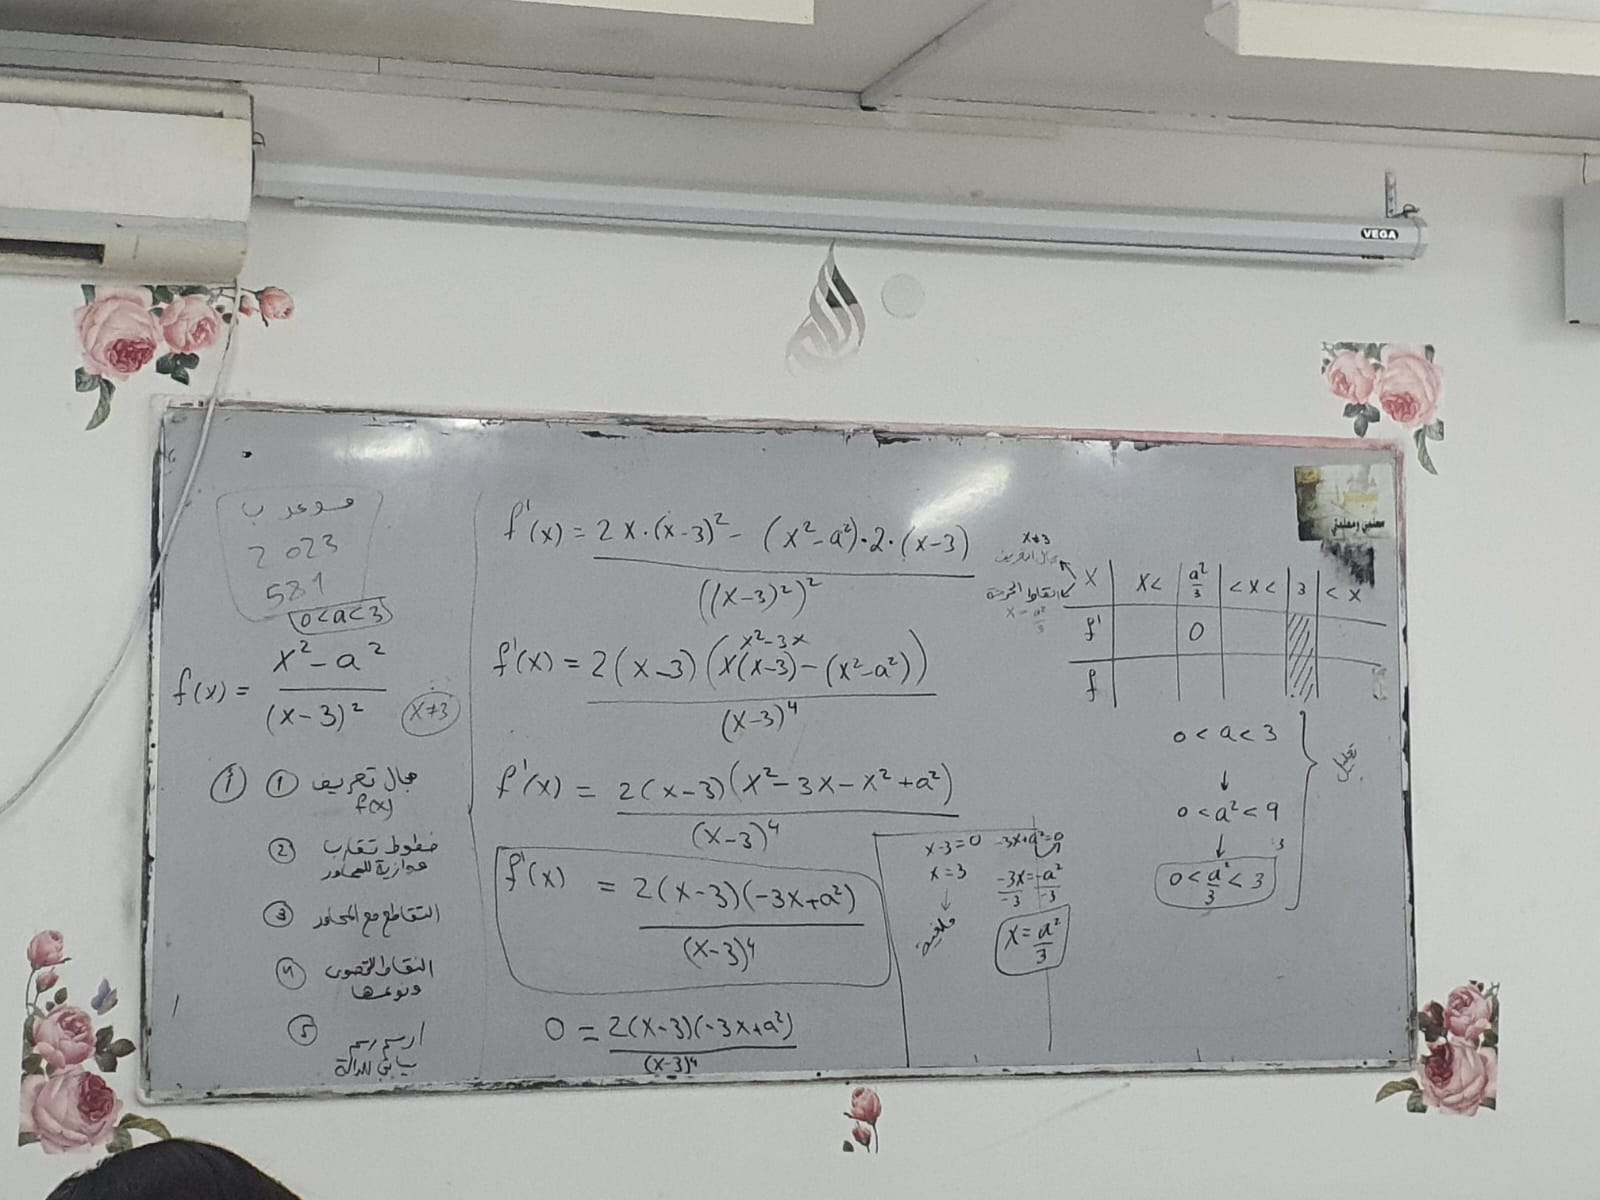 VEGA
الله
معلمي ومعلمتي
موعد ب
2023
581
0<a<3
f(x) = (x²-a²)/(x-3)²
x≠3
أ ① مجال تعريف
f(x)
② خطوط تقارب
موازية للمحاور
③ التقاطع مع المحاور
④ النقاط القصوى
ونوعها
⑤ ارسم رسم
بياني للدالة
f'(x) = (2x·(x-3)² - (x²-a²)·2·(x-3))/((x-3)²)²
x²-3x
f'(x) = 2(x-3)(x(x-3)-(x²-a²))/(x-3)⁴
f'(x) = 2(x-3)(x²-3x-x²+a²)/(x-3)⁴
f'(x) = 2(x-3)(-3x+a²)/(x-3)⁴
0 = 2(x-3)(-3x+a²)/(x-3)⁴
x-3=0
x=3
↓
ملغية
-3x+a²=0
-3x/-3 = -a²/-3
x = a²/3
x≠3
مجال التعريف
x = a²/3
x | x< | a²/3 | <x< | 3 | <x
f' | 0
f
0<a<3
↓
0<a²<9
↓ :3
0<a²/3<3
تعليل